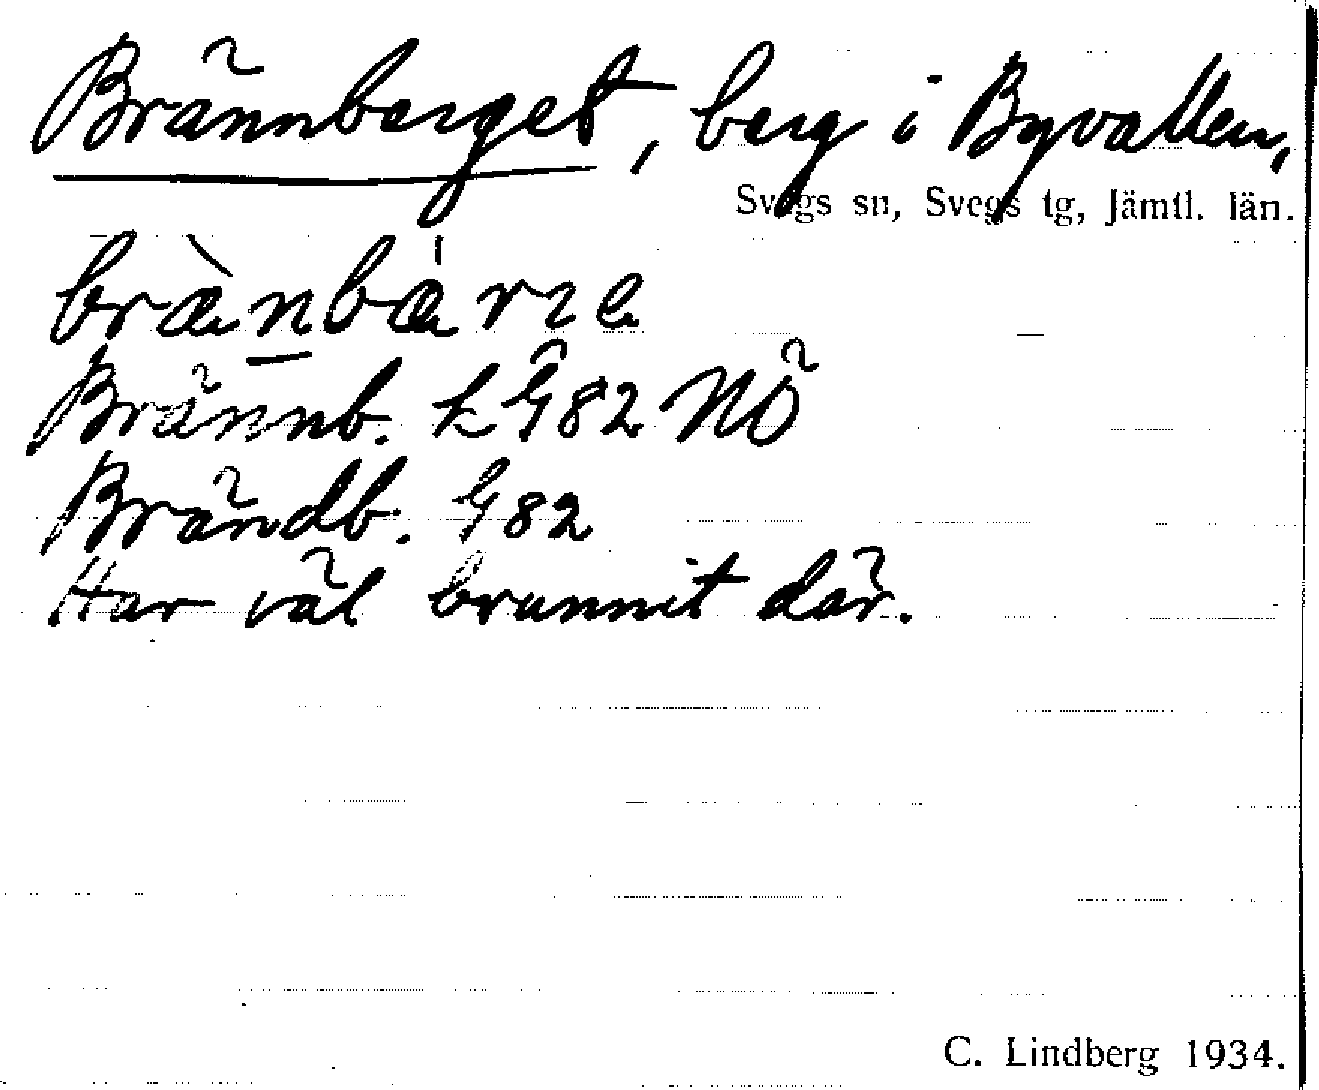 Brännberget, berg i Byvallen,
Svegs sn, Svegs tg, Jämtl. län.
brænbærɪe
Brännb. L G82 NÖ
Brändb. G82
Har väl brunnit där.
C. Lindberg 1934.